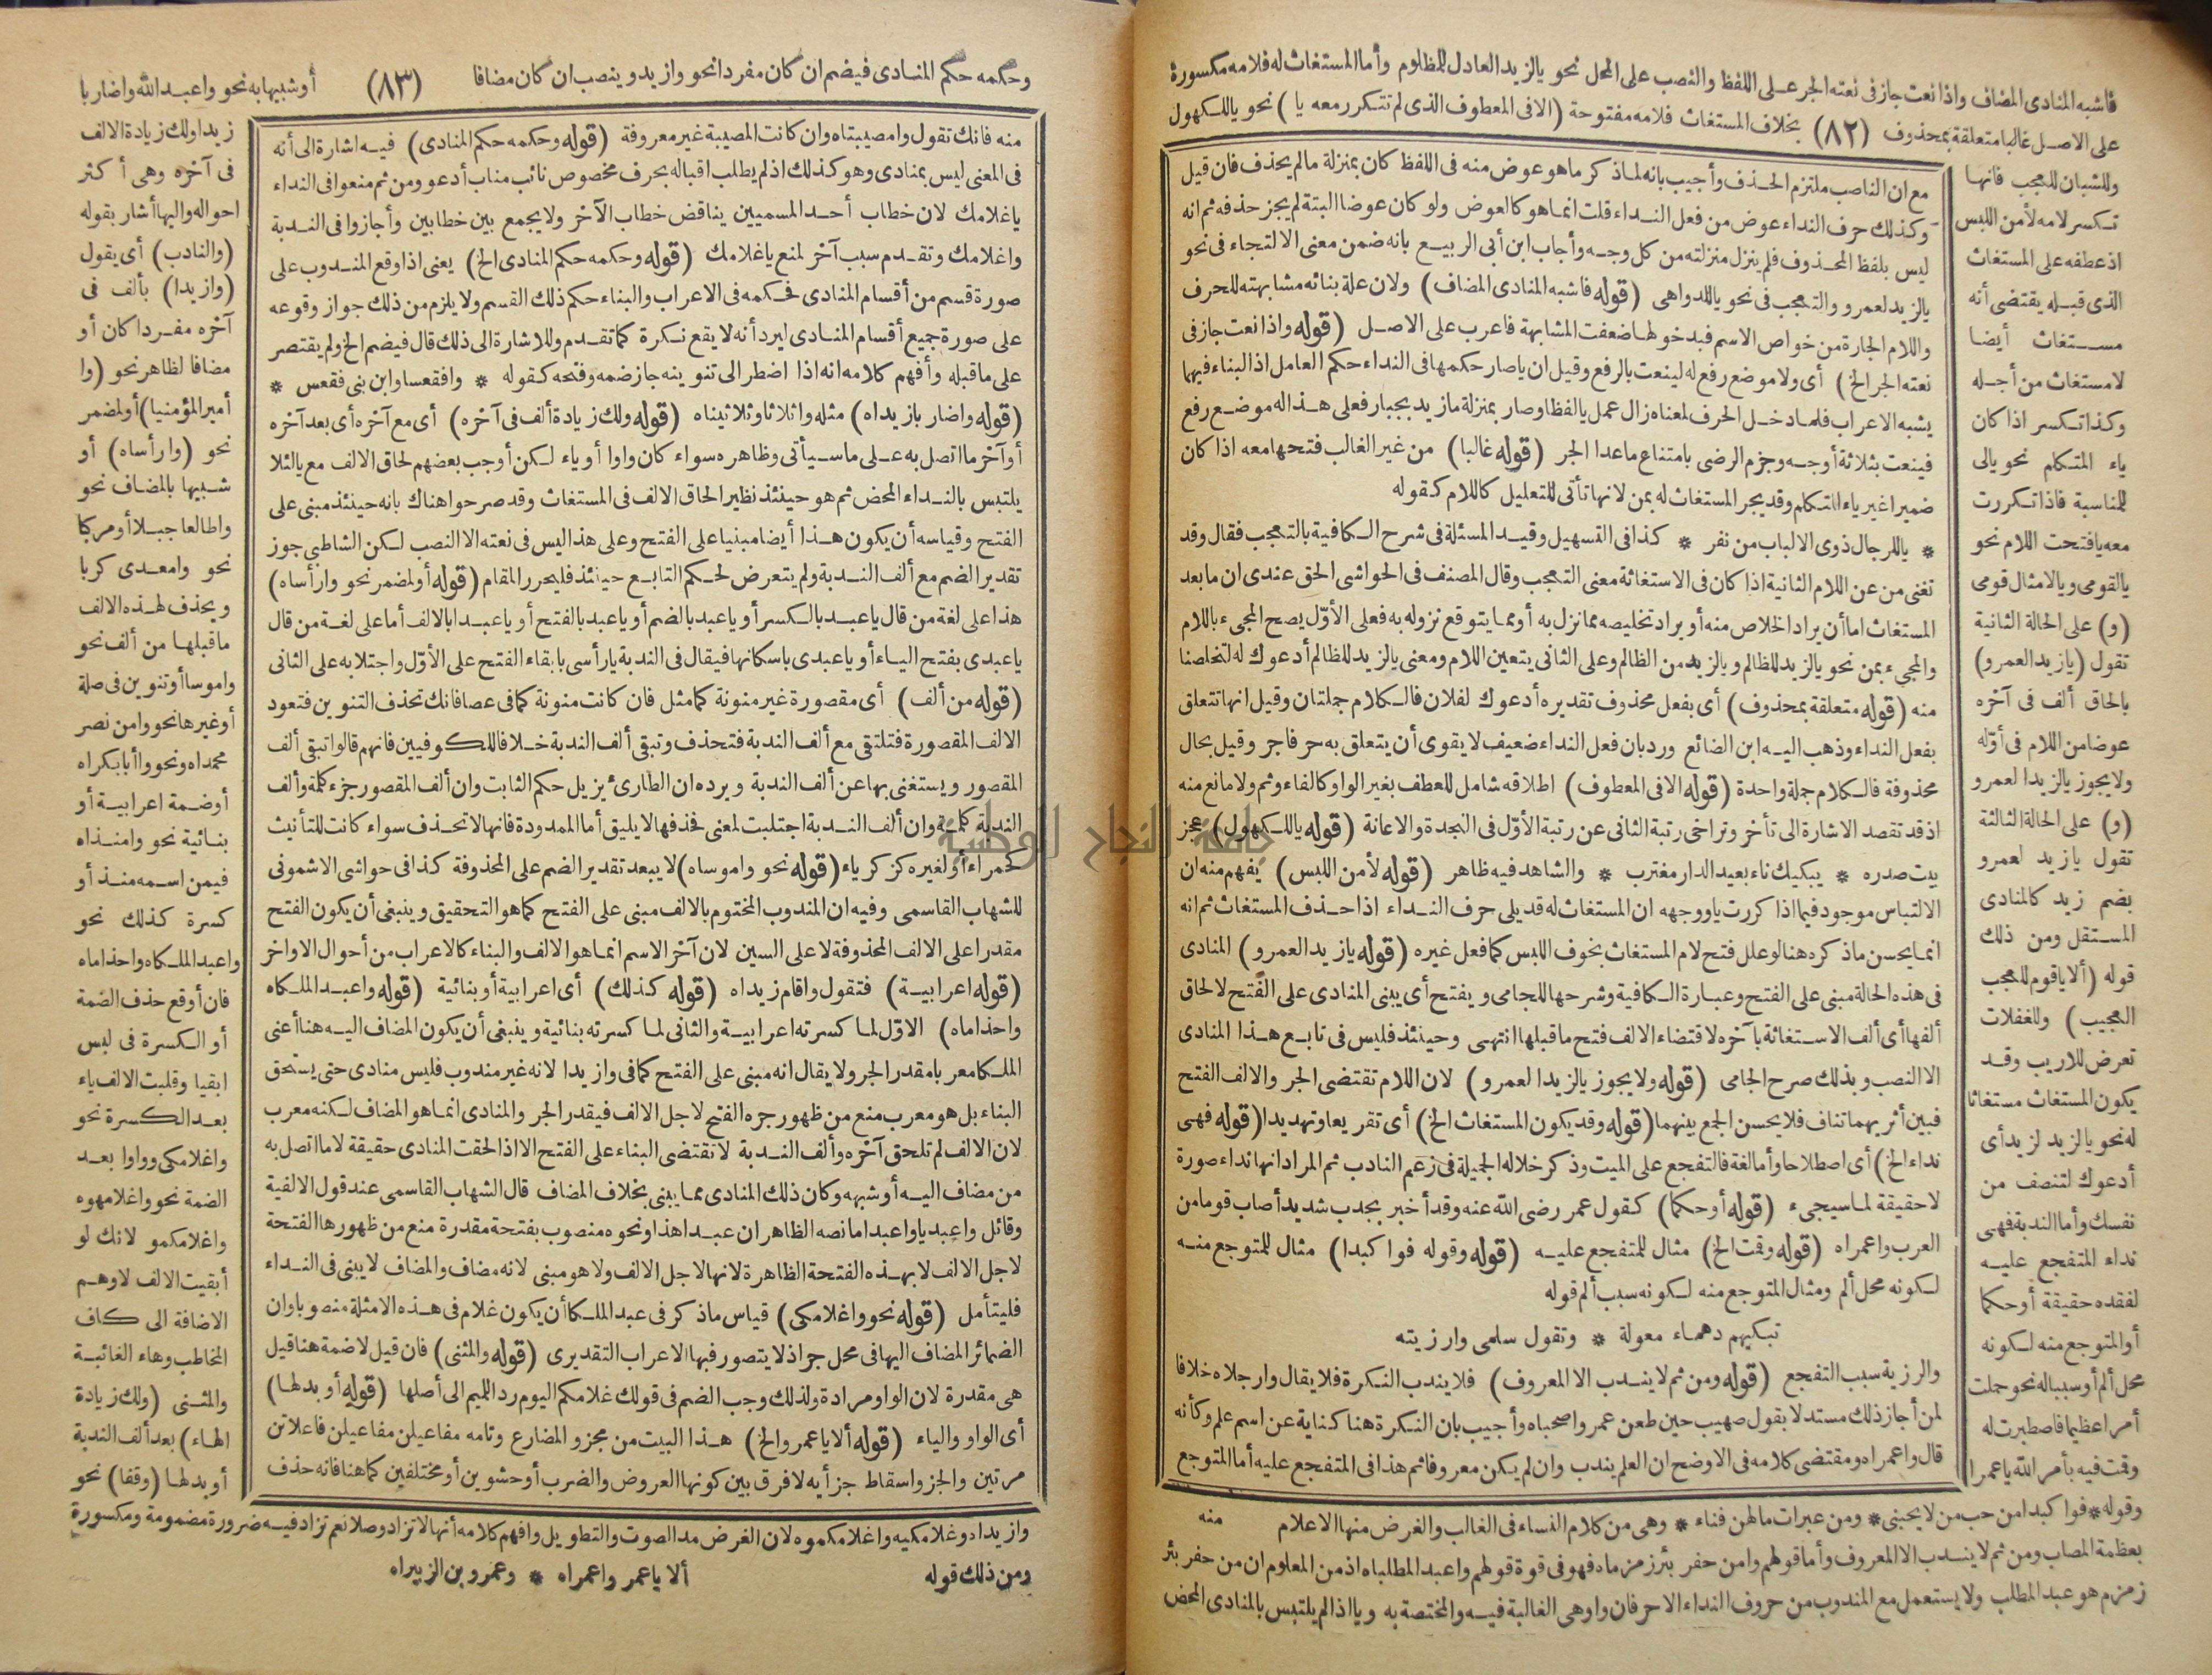 فاشبه المنادى المضاف واذا نعت جاز فى نعته الجر عـلى اللفظ والنصب على المحل نحو يالزيد العادل للمظلوم وأما المستغاث له فلامه مكسورة
على الاصـل غالبا متعلقة بمحذوف (٨٢) بخلاف المستغاث فلامه مفتوحة (الا فى المعطوف الذى لم تتكرر معه يا) نحو يا للـكهول
وللشبان للعجب فانها
تـكسر لامه لأمن اللبس
اذ عطفه على المستغاث
الذى قبـله يقتضى أنه
مسـتغاث أيضا
لا مستغاث من أجـله
وكذا تـكسر اذا كان
ياء المتـكلم نحو يالى
للمناسبة فاذا تـكررت
معه يا فتحت اللام نحو
يا لقومى ويا لامثال قومى
(و) على الحالة الثانية
تقول (يا زيدا لعمرو)
بالحاق ألف فى آخره
عوضا من اللام فى أوّله
ولا يجوز يالزيدا لعمرو
(و) على الحالة الثالثة
تقول يا زيد لعمرو
بضم زيد كالمنادى
المسـتقل ومن ذلك
قوله (ألا يا قوم للعجب
العجيب) وللغفلات
تعرض للاريب وقـد
يكون المستغاث مستغاثا
له نحو يالزيد لزيد أى
أدعوك لتنصف من
نفسك وأما الندبة فهى
نداء المتفجع عليـه
لفقده حقيقة أو حكما
أو المتوجع منه لـكونه
محل ألم أو سببا له نحو حملت
أمرا عظيما فاصطبرت له
وقمت فيه بأمر الله يا عمرا
مع ان الناصب ملتزم الحـذف وأجيب بانه لمـا ذكر ما هو عوض منه فى اللفظ كان بمنزلة ما لم يحذف فان قيل
وكذلك حرف النداء عوض من فعل النـداء قلت انمـا هو كالعوض ولو كان عوضا البتة لم يجز حذفه ثم انه
ليس بلفظ المحـذوف فلم ينزل منزلته من كل وجـه وأجاب ابن أبى الربيـع بانه ضمن معنى الالتجاء فى نحو
يالزيد لعمرو والتعجب فى نحو يا للدواهى (قوله فاشبه المنادى المضاف) ولان علة بنائه مشابهته للحرف
واللام الجارة من خواص الاسم فبدخولهـا ضعفت المشابهة فاعرب على الاصـل (قوله واذا نعت جاز فى
نعته الجر الخ) أى ولا موضع رفع له لينعت بالرفع وقيل ان يا صار حكمها فى النداء حكم العامل اذ البناء فيهما
يشبه الاعراب فلمـا دخـل الحرف لمعناه زال عمل يا لفظا وصار بمنزلة ما زيد بجبار فعلى هـذا له موضـع رفع
فينعت بثلاثة أوجـه وجزم الرضى بامتناع ما عدا الجر (قوله غالبا) من غير الغالب فتحها معه اذا كان
ضميرا غير ياء المتـكلم وقد يجر المستغاث له بمن لانها تأتى للتعليل كاللام كـقوله
* ياللرجال ذوى الالباب من نفر * كذا فى التسهيل وقيـد المسئلة فى شرح الـكافية بالتعجب فقال وقد
تغنى من عن اللام الثانية اذا كان فى الاستغاثة معنى التعجب وقال المصنف فى الحواشى الحق عندى ان ما بعد
المستغاث اما أن يراد الخلاص منه أو يراد تخليصه مما نزل به أو ممـا يتوقع نزوله به فعلى الأوّل يصح المجىء باللام
والمجىء بمن نحو يالزيد للظالم ويالزيد من الظالم وعلى الثانى يتعين اللام ومعنى يالزيد للظالم أدعوك له لتخلصنا
منه (قوله متعلقة بمحذوف) أى بفعل محذوف تقديره أدعوك لفلان فالـكلام جملتان وقيل انها تتعلق
بفعل النداء وذهب اليـه ابن الضائع ورد بان فعل النداء ضعيف لا يقوى أن يتعلق به حر فاجر وقيل بحال
محذوفة فالـكلام جملة واحدة (قوله الا فى المعطوف) اطلاقه شامل للعطف بغير الواو كالفاء وثم ولا مانع منه
اذ قد تقصد الاشارة الى تأخر وتراخى رتبة الثانى عن رتبة الأوّل فى النجدة والاعانة (قوله ياللـكهول) عجز
بيت صدره * يبكيك ناء بعيد الدار مغترب * والشاهد فيه ظاهر (قوله لأمن اللبس) يفهم منه ان
الالتباس موجود فيما اذا كررت يا ووجهه ان المستغاث له قد يلى حرف النـداء اذا حـذف المستغاث ثم انه
انمـا يحسن ما ذكره هنا لو علل فتح لام المستغاث بخوف اللبس كما فعل غيره (قوله يا زيدا لعمرو) المنادى
فى هذه الحالة مبنى على الفتح وعبـارة الـكافية وشرحها للجامى ويفتح أى يبنى المنادى على الفتح لالحاق
ألفها أى ألف الاسـتغاثة بآخره لاقتضاء الالف فتح ما قبلها انتهى وحينئذ فليس فى تابـع هـذا المنادى
الا النصب وبذلك صرح الجامى (قوله ولا يجوز يالزيدا لعمرو) لان اللام تقتضى الجر والالف الفتح
فبين أثريهما تناف فلا يحسن الجمع بينهما (قوله وقد يكون المستغاث الخ) أى تقريعا وتهديدا (قوله فهى
نداء الخ) أى اصطلاحا وأما لغة فالتفجع على الميت وذكر خلاله الجميلة فى زعم النادب ثم المراد انها نداء صورة
لا حقيقة لمـا سيجىء (قوله أو حكما) كـقول عمر رضى الله عنه وقد أخبر بجدب شديد أصاب قوما من
العرب واعمراه (قوله وقمت الخ) مثال للمتفجع عليـه (قوله وقوله فوا كبدا) مثال للمتوجع منـه
لـكونه محل ألم ومثال المتوجع منه لـكونه سبب ألم قوله
تبكيهم دهماء معولة * وتقول سلمى وارزيته
والرزية سبب التفجع (قوله ومن ثم لا ينـدب الا المعروف) فلا يندب النـكرة فلا يقال وارجلاه خلافا
لمن أجاز ذلك مستدلا بقول صهيب حين طعن عمر واصحباه وأجيب بان النـكرة هنا كناية عن اسم علم وكأنه
قال واعمراه ومقتضى كلامه فى الاوضح ان العلم يندب وان لم يـكن معروفا ثم هذا فى المتفجع عليه أما المتوجع
منه
وقوله * فوا كبدا من حب من لا يحبنى * ومن عبرات مالهن فناء * وهى من كلام النساء فى الغالب والغرض منها الاعلام
بعظمة المصاب ومن ثم لا ينـدب الا المعروف وأما قولهم وامن حفر بئر زمزماه فهو فى قوة قولهم واعبد المطلباه اذ من المعلوم ان من حفر بئر
زمزم هو عبد المطلب ولا يستعمل مع المندوب من حروف النداء الا حرفان وا وهى الغالبة فيـه والمختصة به ويا اذا لم يلتبس بالمنادى المحض
وحكمه حكم المنـادى فيضم ان كان مفردا نحو وازيد وينصب ان كان مضافا (٨٣) أو شبيها به نحو واعبـد الله واضاربا
زيدا ولك زيادة الالف
فى آخره وهى أكثر
احواله واليها أشار بقوله
(والنادب) أى يقول
(وازيدا) بألف فى
آخره مفـردا كان أو
مضافا لظاهر نحو (وا
أمير المؤمنيا) أو لمضمر
نحو (وارأساه) أو
شـبيها بالمضاف نحو
واطالعا جبـلا أو مركبا
نحو وامعـدى كربا
ويحذف لهـذه الالف
ما قبلهـا من ألف نحو
واموسا أو تنوين فى صلة
أو غيرها نحو وامن نصر
محمداه ونحو واأبا بكراه
أو ضـمة اعرابيـة أو
بنـائية نحو وامنـذاه
فيمن اسـمه منـذ أو
كسرة كذلك نحو
واعبد الملـكاه واحذاماه
فان أوقع حذف الضمة
أو الـكسرة فى لبس
ابقيا وقلبت الالف ياء
بعـد الـكسرة نحو
واغلامكى وواوا بعـد
الضمة نحو واغلامهوه
واغلامكمو لانك لو
أبقيت الالف لاوهـم
الاضافة الى كاف
المخاطب وهاء الغائبـة
والمثـنى (ولك زيادة
الهـاء) بعد ألف الندبة
أو بدلهـا (وقفا) نحو
منه فانك تقول وامصيبتاه وان كانت المصيبة غير معروفة (قوله وحكمه حكم المنادى) فيـه اشارة الى أنه
فى المعنى ليس بمنادى وهو كذلك اذ لم يطلب اقباله بحرف مخصوص نائب مناب أدعو ومن ثم منعوا فى النداء
يا غلامك لان خطاب أحـد المسميين يناقض خطاب الآخر ولا يجمع بين خطابين وأجازوا فى النـدبة
واغلامك وتقـدم سبب آخر لمنع يا غلامك (قوله وحكمه حكم المنادى الخ) يعنى اذا وقع المنـدوب على
صورة قسم من أقسام المنادى فحكمه فى الاعراب والبناء حكم ذلك القسم ولا يلزم من ذلك جواز وقوعه
على صورة جميع أقسام المنـادى ليرد أنه لا يقع نـكرة كما تقـدم وللاشارة الى ذلك قال فيضم الخ ولم يقتصر
على ما قبله وأفهم كلامه انه اذا اضطر الى تنوينه جاز ضمه وفتحه كـقوله * وافقعسا وابن بنى فقعس *
(قوله واضاربا زيداه) مثله واثلاثا وثلاثيناه (قوله ولك زيادة ألف فى آخره) أى مع آخره أى بعد آخره
أو آخر ما اتصل به عـلى ما سـيأتى وظاهره سواء كان واوا أو ياء لـكن أوجب بعضهم لحاق الالف مع يا لئلا
يلتبس بالنـداء المحض ثم هو حينئذ نظير الحاق الالف فى المستغاث وقد صرحوا هناك بانه حينئذ مبنى على
الفتح وقياسه أن يكون هـذا أيضا مبنيا على الفتح وعلى هذا ليس فى نعته الا النصب لـكن الشاطبى جوز
تقدير الضم مع ألف النـدبة ولم يتعرض لحـكم التابـع حينئذ فليحرر المقام (قوله أو لمضمر نحو وارأساه)
هذا على لغة من قال يا عبـد بالـكسر أو يا عبد بالضم أو يا عبد بالفتح أو يا عبـدا بالالف أما على لغـة من قال
يا عبدى بفتح اليـاء أو يا عبدى باسكانها فيقال فى الندبة يا رأسى بابقاء الفتح على الأوّل واجتلابه على الثانى
(قوله من ألف) أى مقصورة غير منونة كما مثل فان كانت منونة كما فى عصا فانك تحذف التنوين فتعود
الالف المقصورة فتلتقى مع ألف الندبة فتحذف وتبقى ألف الندبة خـلافا للـكوفيين فانهم قالوا تبقى ألف
المقصور ويستغنى بها عن ألف الندبة ويرده ان الطارئ يزيل حكم الثابت وان ألف المقصور جزء كلمة وألف
الندبة كلمـة وان ألف النـدبة اجتلبت لمعنى فحذفها لا يليق أما الممدودة فانها لا تحـذف سواء كانت للتأنيث
كحمراء أو لغيره كزكرياء (قوله نحو واموساه) لا يبعد تقدير الضم على المحذوفة كذا فى حواشى الاشمونى
للشهاب القاسمى وفيه ان المندوب المختوم بالالف مبنى على الفتح كما هو التحقيق وينبغى أن يكون الفتح
مقدرا على الالف المحذوفة لا على السين لان آخر الاسم انمـا هو الالف والبناء كالاعراب من أحوال الاواخر
(قوله اعرابيـة) فتقول واقام زيداه (قوله كذلك) أى اعرابية أو بنائية (قوله واعبـد الملـكاه
واحذاماه) الاوّل لمـا كسرته اعرابيـة والثانى لمـا كسرته بنائية وينبغى أن يكون المضاف اليـه هنا أعنى
الملـكا معربا مقدر الجر ولا يقال انه مبنى على الفتح كما فى وازيدا لانه غير مندوب فليس منادى حتى يستحق
البناء بل هو معرب منع من ظهور جره الفتح لاجل الالف فيقدر الجر والمنادى انمـا هو المضاف لـكنه معرب
لان الالف لم تلحق آخره وألف النـدبة لا تقتضى البناء على الفتح الا اذا لحقت المنادى حقيقة لا ما اتصل به
من مضاف اليـه أو شبهه وكان ذلك المنادى ممـا يبنى بخلاف المضاف قال الشهاب القاسمى عند قول الالفية
وقائل واعبديا واعبدا ما نصه الظاهر ان عبـدا هذا ونحوه منصوب بفتحة مقدرة منع من ظهورها الفتحة
لاجل الالف لا بهـذه الفتحة الظاهرة لانها لاجل الالف ولا هو مبنى لانه مضاف والمضاف لا يبنى فى النـداء
فليتأمل (قوله نحو واغلامكى) قياس ما ذكر فى عبد الملـكا أن يكون غلام فى هـذه الامثلة منصوبا وان
الضمائر المضاف اليها فى محل جر اذ لا يتصور فيها الاعراب التقديرى (قوله والمثنى) فان قيل لا ضمة هنا قيل
هى مقدرة لان الواو مرادة ولذلك وجب الضم فى قولك غلامكم اليوم رد الميم الى أصلها (قوله أو بدلهـا)
أى الواو والياء (قوله ألا يا عمرو الخ) هـذا البيت من مجزو المضارع وتامه مفاعيلن مفاعيلن فاعلاتن
مرتين والجزو اسقاط جزأيه لا فرق بين كونها العروض والضرب أو حشوين أو مختلفين كما هنا فانه حذف
وازيداه وغلامكيه واغلامكموه لان الغرض مد الصوت والتطويل وافهم كلامه أنها لا تزاد وصلا نعم تزاد فيـه ضرورة مضمومة ومكسورة
ومن ذلك قوله ألا يا عمر واعمراه * وعمرو بن الزبيراه
جامعة النجاح الوطنية